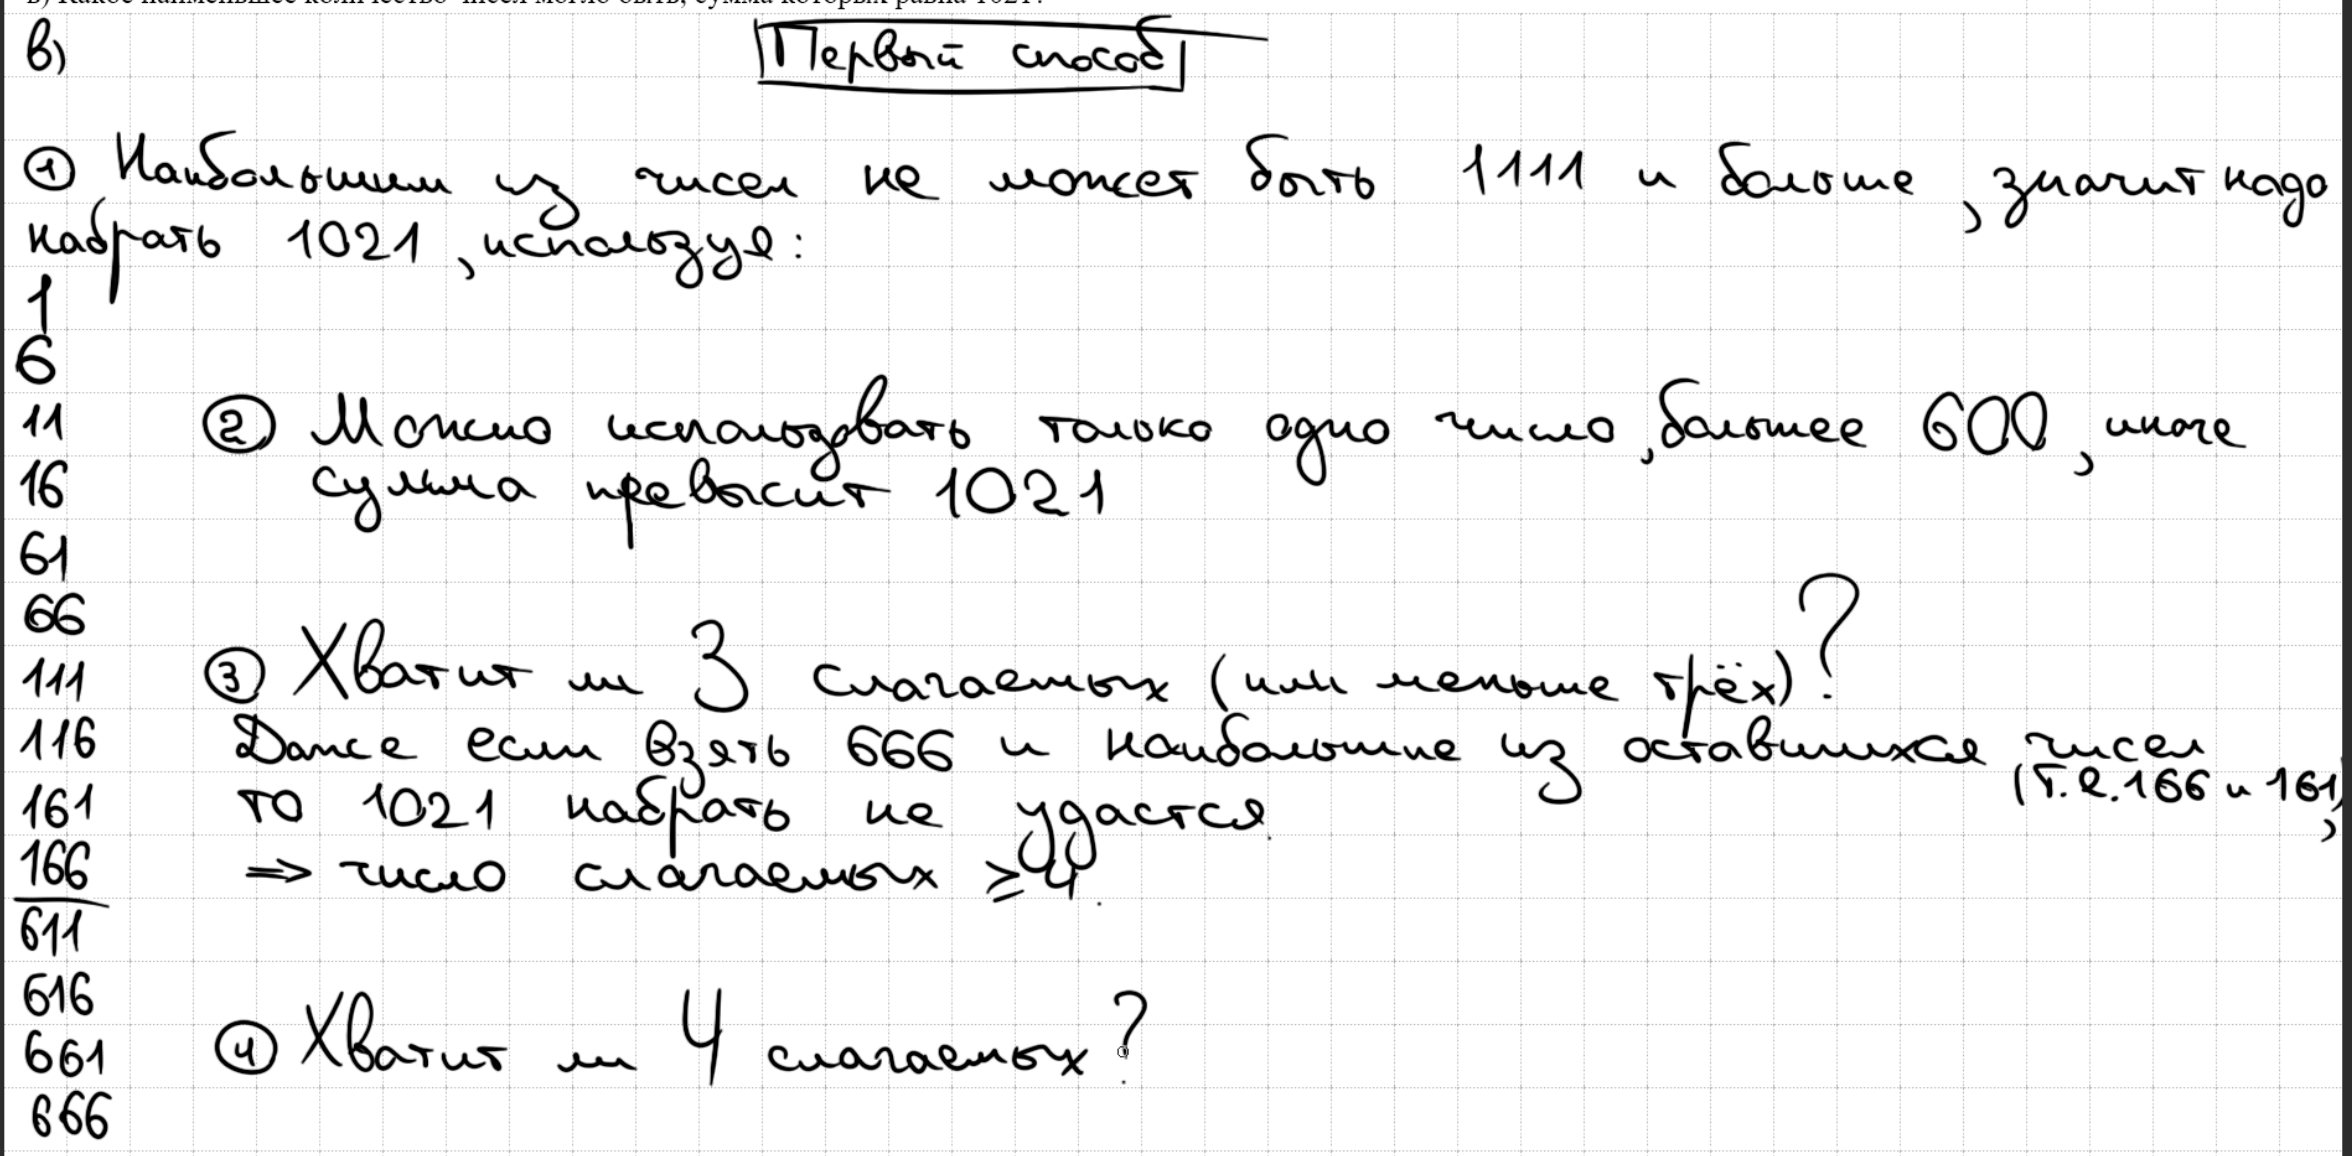 в)
Первый способ
① Наибольшим из чисел не может быть 1111 и больше, значит надо
набрать 1021, используя:
1
6
11
16
61
66
111
116
161
166
611
616
661
666
② Можно использовать только одно число, большее 600, иначе
сумма превысит 1021
③ Хватит ли 3 слагаемых (или меньше трёх)?
Даже если взять 666 и наибольшие из оставшихся чисел
(т.е. 166 и 161),
то 1021 набрать не удастся.
⇒ число слагаемых ≥ 4.
④ Хватит ли 4 слагаемых?